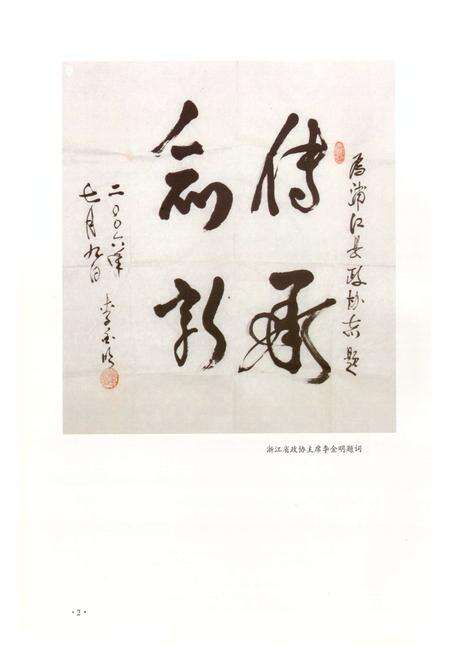 为浦江县政协志题
傳承
創新
二〇〇六年
七月九日
李金明
浙江省政协主席李金明题词
·2·